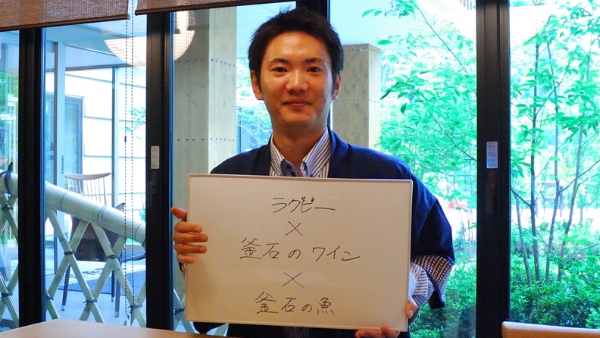 ラグビー
×
釜石のワイン
×
釜石の魚